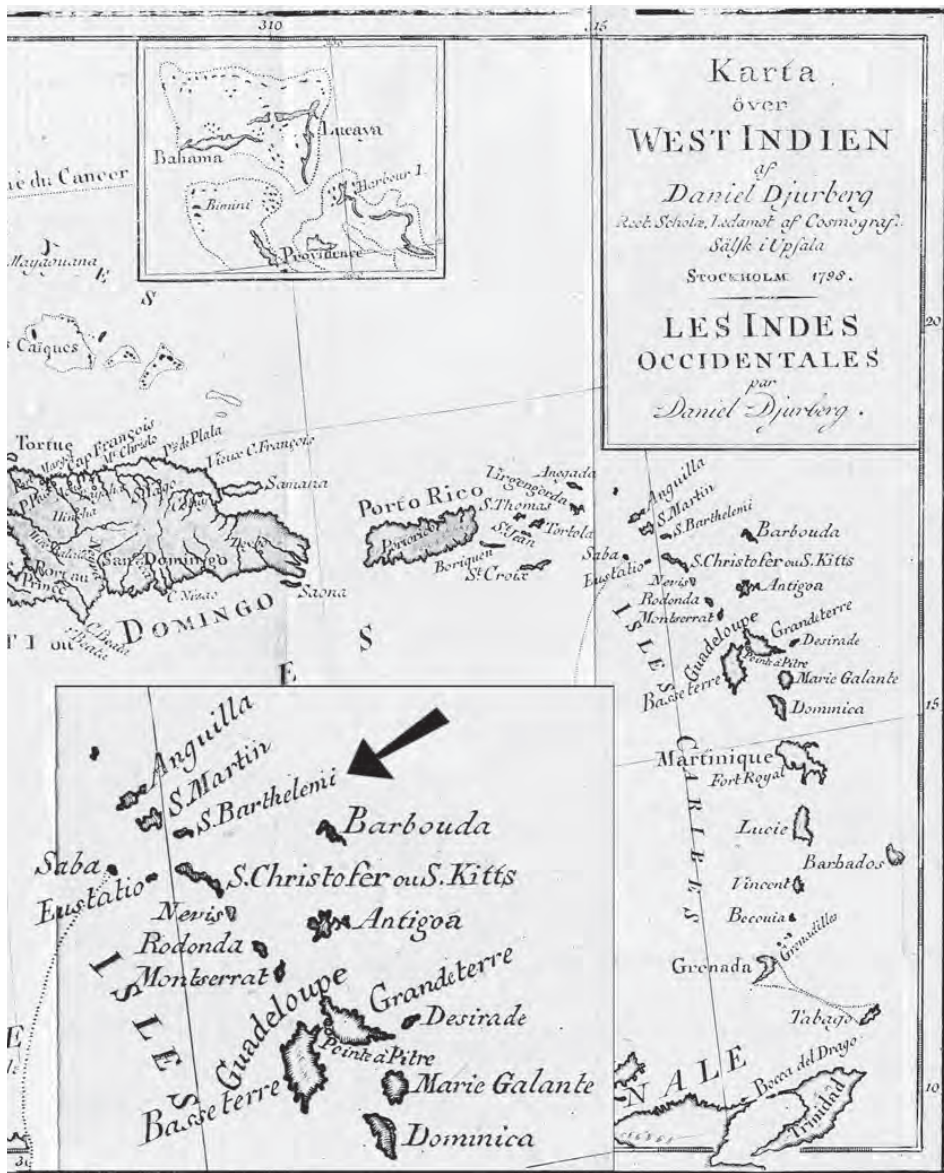 310
315
Karta
öfver
WEST INDIEN
af
Daniel Djurberg
Rect. Scholæ, Ledamot af Cosmograf.
Sälsk i Upsala
STOCKHOLM 1798.
LES INDES
OCCIDENTALES
par
Daniel Djurberg.
Lucaya
Bahama
Harbour I.
Bimini
Providence
ue du Cancer
Mayaguana
E
S
s Caïques
20
Tortue
Cap François
Mt. Christo
Pto. de Plata
Vieux C. François
Samana
S. Yago
Hincha
San Domingo
Port au
Prince
C. Nizao
Saona
DOMINGO
C. Beata
I. Beata
T I ou
E
S
Porto Rico
Portorico
Boriquen
Virgengorda
Anegada
S. Thomas
St. Jean
Tortola
St. Croix
Anguilla
S. Martin
S. Barthelemi
Barbouda
Saba
Eustatio
S. Christofer ou S. Kitts
Nevis
Antigoa
Rodonda
Montserrat
Guadeloupe
Grandeterre
Desirade
Pointe à Pitre
Basseterre
Marie Galante
Dominica
ISLES
15
Martinique
Fort Royal
CARIBES
Lucie
Barbados
Vincent
Becouia
Grenadilles
Grenada
Tabago
Bocca del Drago
NALE
Trinidad
10
Anguilla
S. Martin
S. Barthelemi
Barbouda
Saba
Eustatio
S. Christofer ou S. Kitts
Nevis
Antigoa
Rodonda
Montserrat
Guadeloupe
Grandeterre
Desirade
Pointe à Pitre
Basseterre
Marie Galante
Dominica
ISLES
E